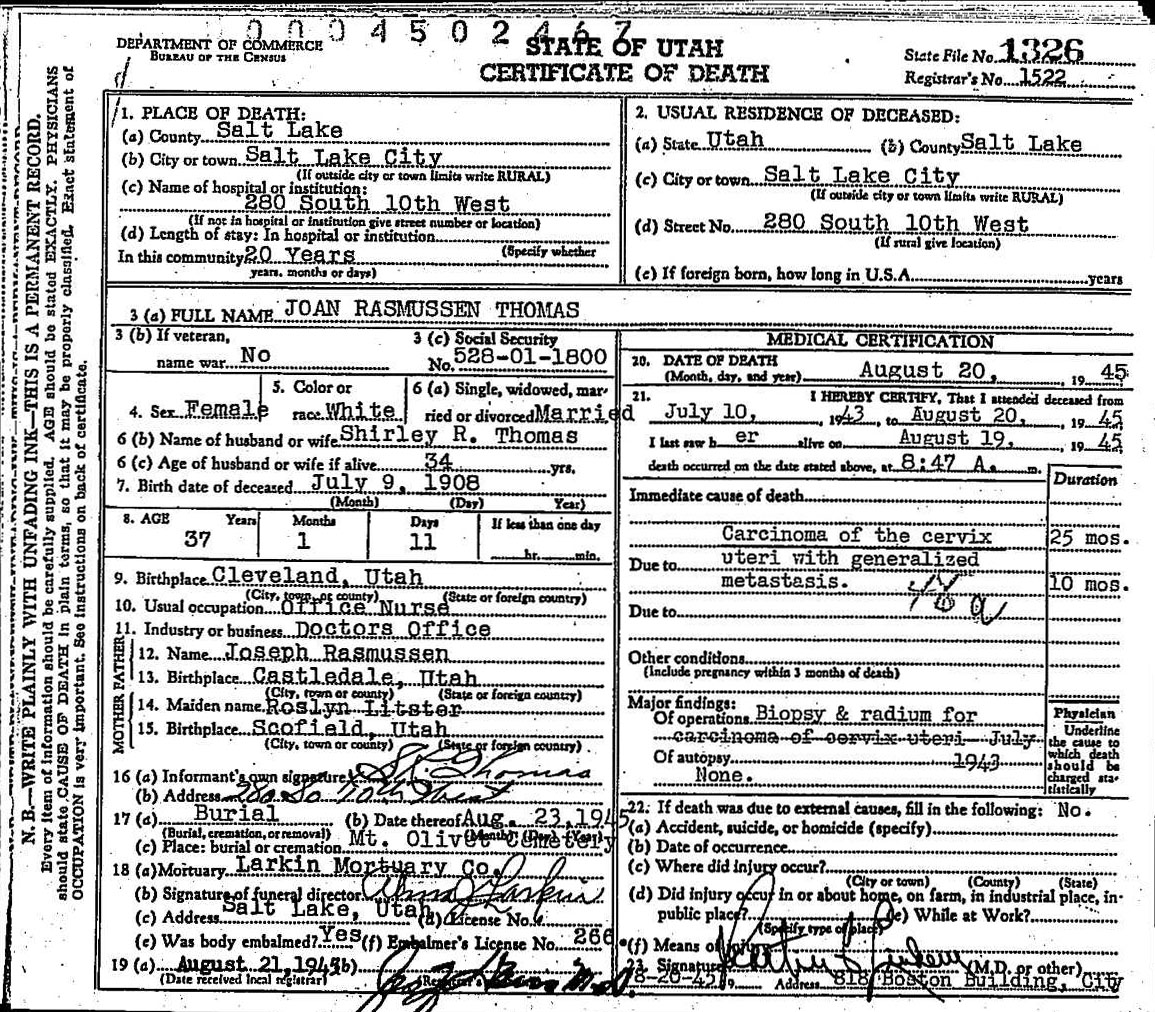 0004502467
DEPARTMENT OF COMMERCE
BUREAU OF THE CENSUS
STATE OF UTAH
CERTIFICATE OF DEATH
State File No. 1326
Registrar's No. 1522
N. B.—WRITE PLAINLY WITH UNFADING INK—THIS IS A PERMANENT RECORD.
Every item of information should be carefully supplied. AGE should be stated EXACTLY. PHYSICIANS
should state CAUSE OF DEATH in plain terms, so that it may be properly classified. Exact statement of
OCCUPATION is very important. See instructions on back of certificate.
1. PLACE OF DEATH:
(a) County Salt Lake
(b) City or town Salt Lake City
(If outside city or town limits write RURAL)
(c) Name of hospital or institution:
280 South 10th West
(If not in hospital or institution give street number or location)
(d) Length of stay: In hospital or institution
(Specify whether
In this community 20 Years
years, months or days)
2. USUAL RESIDENCE OF DECEASED:
(a) State Utah (b) County Salt Lake
(c) City or town Salt Lake City
(If outside city or town limits write RURAL)
(d) Street No. 280 South 10th West
(If rural give location)
(e) If foreign born, how long in U.S.A. years
3 (a) FULL NAME JOAN RASMUSSEN THOMAS
3 (b) If veteran,
name war No
3 (c) Social Security
No. 528-01-1800
4. Sex Female
5. Color or
race White
6 (a) Single, widowed, mar-
ried or divorced Married
6 (b) Name of husband or wife Shirley R. Thomas
6 (c) Age of husband or wife if alive 34 yrs.
7. Birth date of deceased July 9, 1908
(Month) (Day) Year)
8. AGE Years Months Days If less than one day
37 1 11 hr. min.
9. Birthplace Cleveland, Utah
(City, town, or county) (State or foreign country)
10. Usual occupation Office Nurse
11. Industry or business Doctors Office
FATHER
12. Name Joseph Rasmussen
13. Birthplace Castledale, Utah
(City, town or county) (State or foreign country)
MOTHER
14. Maiden name Roslyn Litster
15. Birthplace Scofield, Utah
(City, town or county) (State or foreign country)
16 (a) Informant's own signature S.R. Thomas
(b) Address 280 So 10th West
17 (a) Burial (b) Date thereof Aug. 23, 1945
(Burial, cremation, or removal) (Month) (Day) (Year)
(c) Place: burial or cremation Mt. Olivet Cemetery
18 (a) Mortuary Larkin Mortuary Co.
(b) Signature of funeral director Larkin
(c) Address Salt Lake, Utah (d) License No.
(e) Was body embalmed? Yes (f) Embalmer's License No. 266
19 (a) August 21, 1945 (b)
(Date received local registrar) (Registrar's
MEDICAL CERTIFICATION
20. DATE OF DEATH
(Month, day, and year) August 20, , 19 45
21. I HEREBY CERTIFY, That I attended deceased from
July 10, , 1943, to August 20, , 19 45
I last saw h er alive on August 19, , 19 45
death occurred on the date stated above, at 8:47 A. m.
Duration
Immediate cause of death
Carcinoma of the cervix 25 mos.
Due to uteri with generalized
metastasis. 10 mos.
48 a
Due to
Other conditions
(Include pregnancy within 3 months of death)
Major findings:
Of operations Biopsy & radium for
carcinoma of cervix uteri July
Of autopsy 1943
None.
Physician
Underline
the cause to
which death
should be
charged sta-
tistically
22. If death was due to external causes, fill in the following: No.
(a) Accident, suicide, or homicide (specify)
(b) Date of occurrence
(c) Where did injury occur?
(City or town) (County) (State)
(d) Did injury occur in or about home, on farm, in industrial place, in-
public place? (e) While at Work?
(Specify type of place)
(f) Means of injury
23. Signature (M.D. or other)
8-20-45 19 Address 818 Boston Building, City